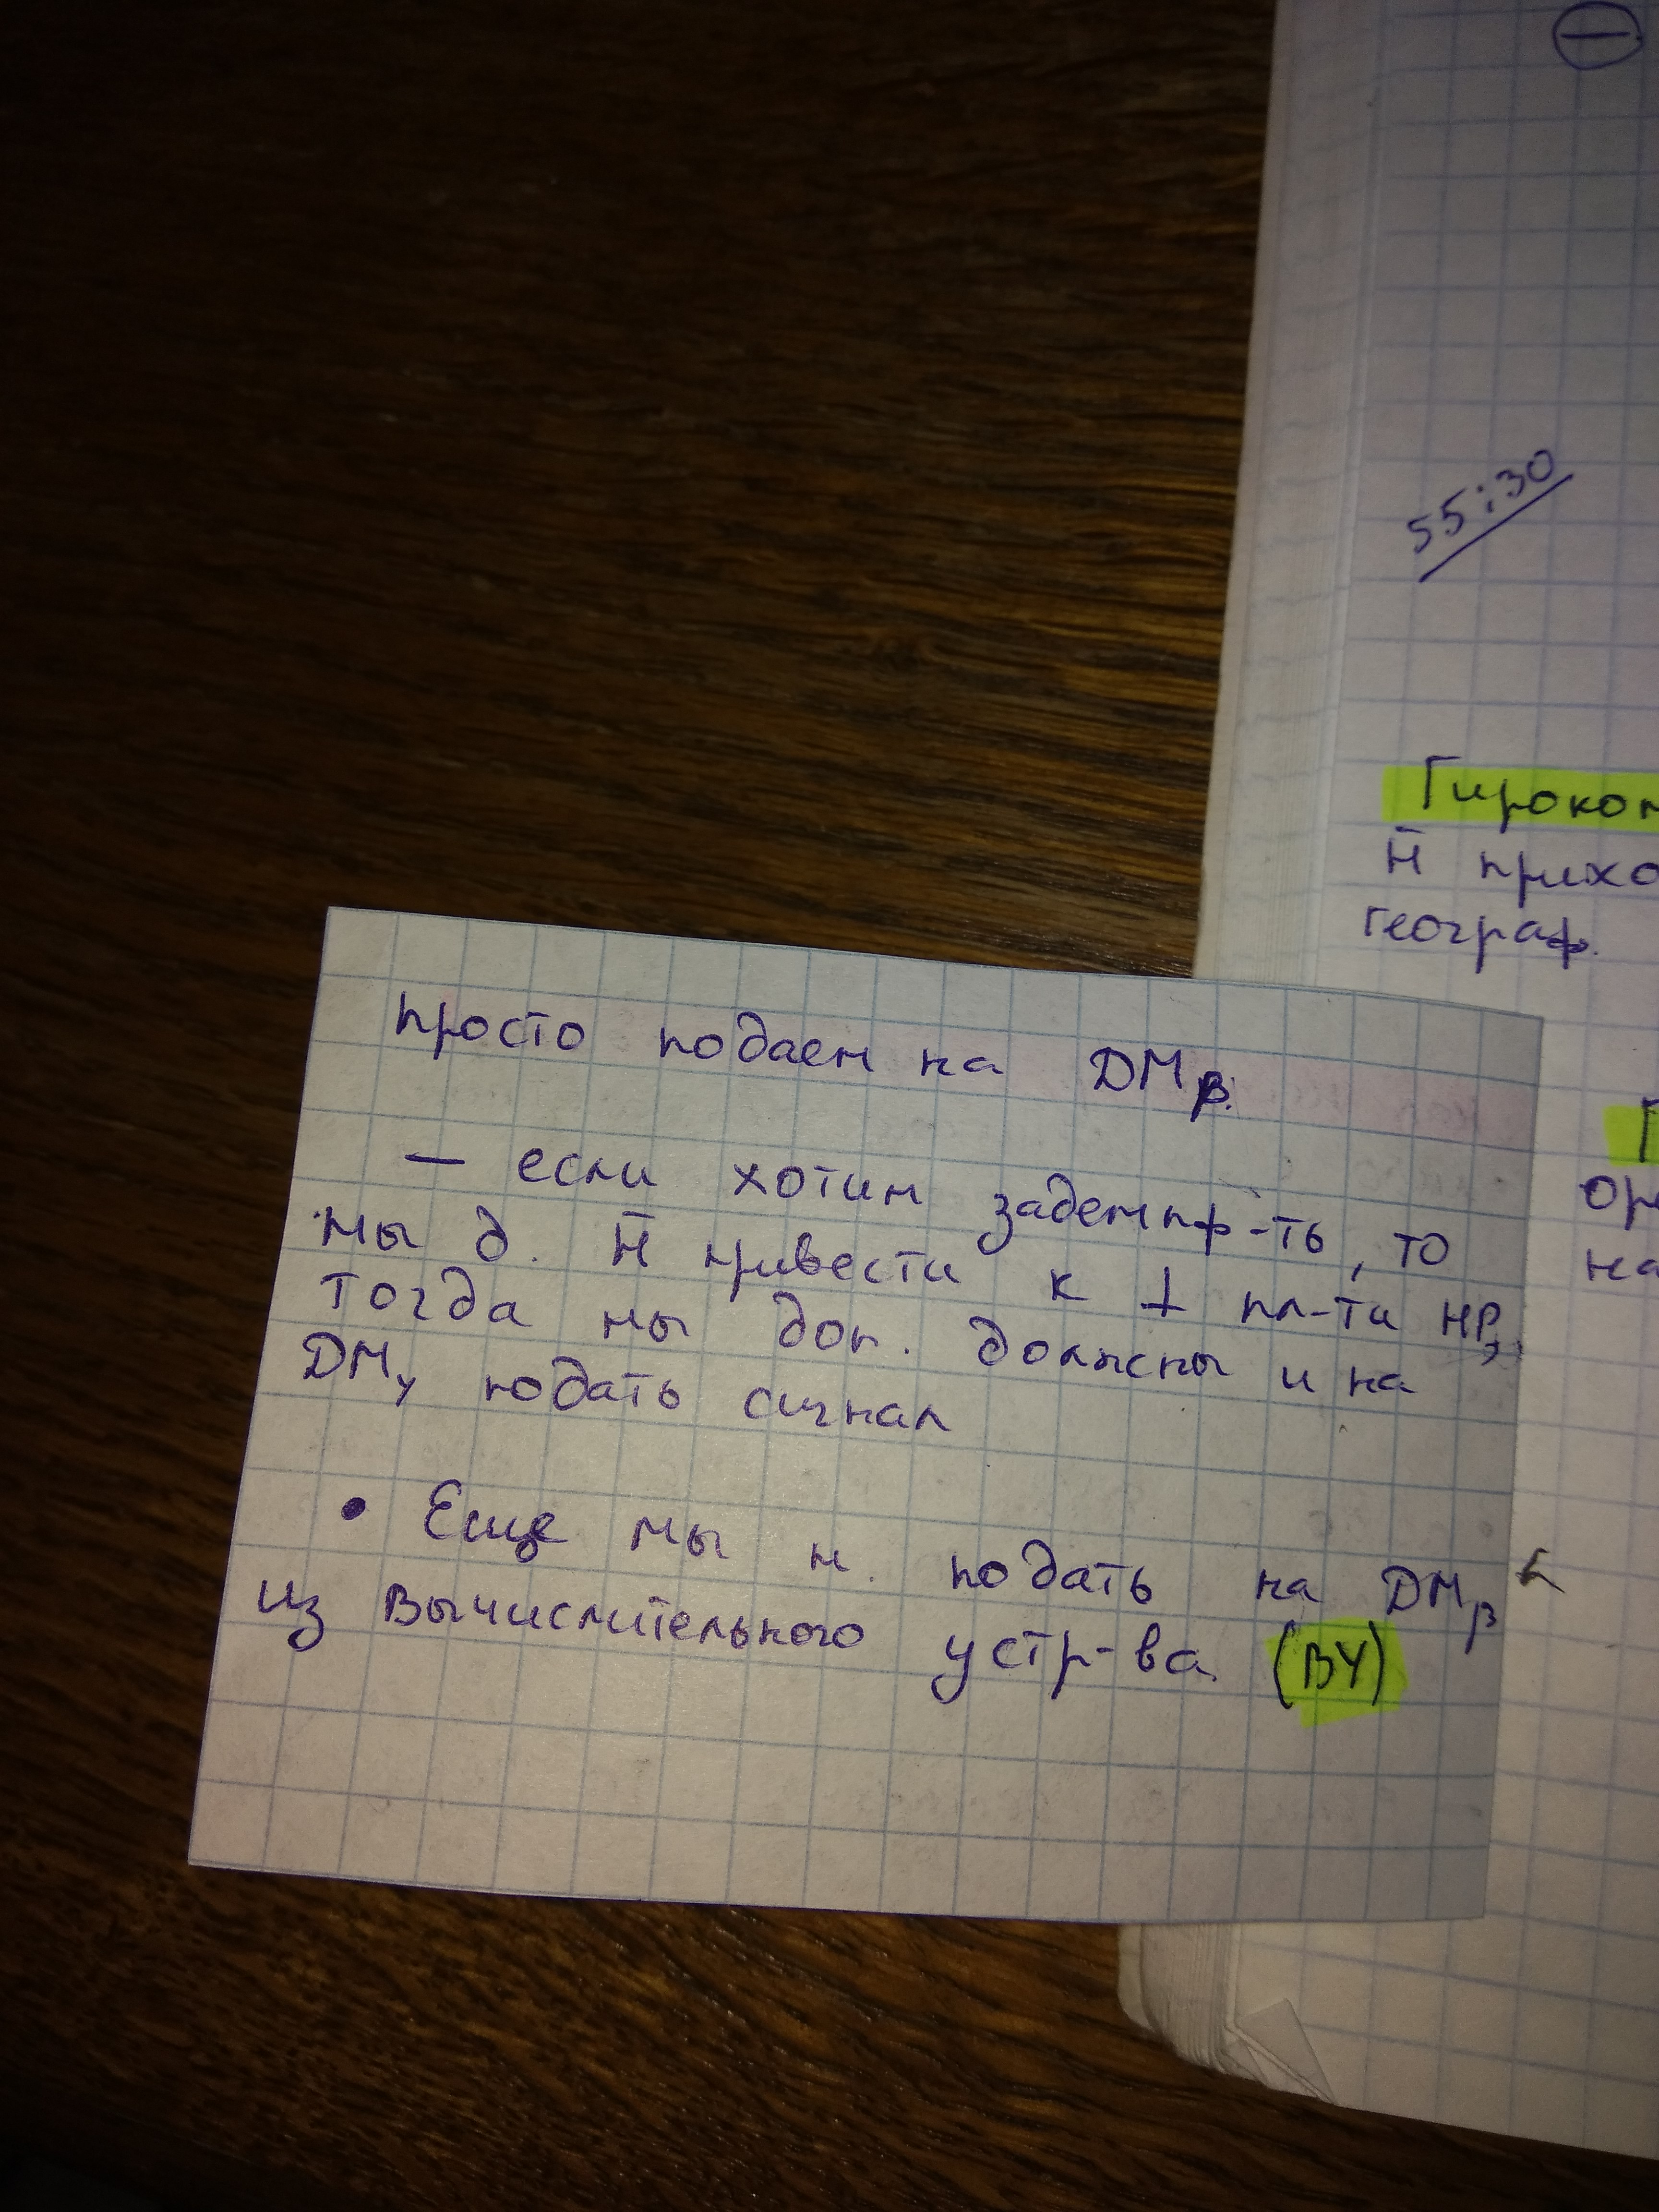 ⊖
55:30
Гироком
H̄ прихо
географ.
Г
ор
на
просто подаем на DMβ.
— если хотим задемпф-ть, то
мы д. H̄ привести к ⊥ пл-ти НР,
тогда мы доп. должны и на
DMγ подать сигнал
• Еще мы м. подать на DMβ
из Вычислительного устр-ва (ВУ)